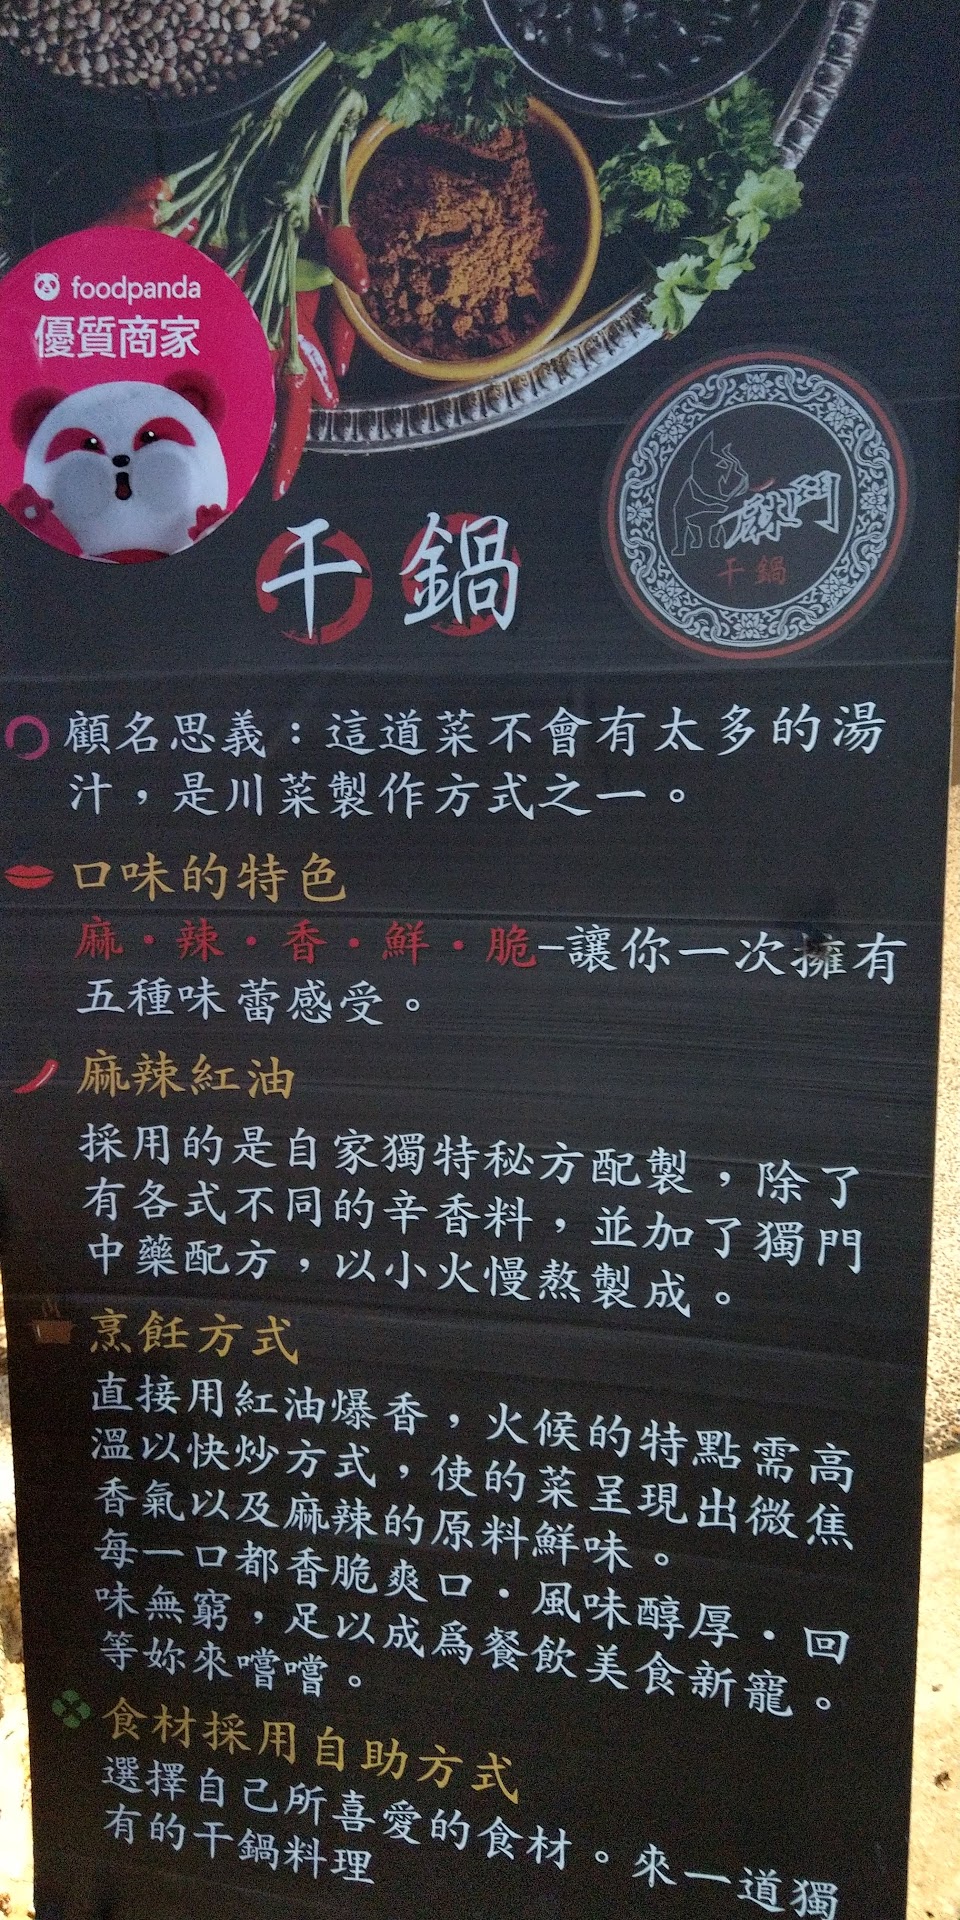 foodpanda
優質商家
鬥
干鍋
干鍋
顧名思義：這道菜不會有太多的湯
汁，是川菜製作方式之一。
口味的特色
麻・辣・香・鮮・脆–讓你一次擁有
五種味蕾感受。
麻辣紅油
採用的是自家獨特秘方配製，除了
有各式不同的辛香料，並加了獨門
中藥配方，以小火慢熬製成。
烹飪方式
直接用紅油爆香，火候的特點需高
溫以快炒方式，使的菜呈現出微焦
香氣以及麻辣的原料鮮味。
每一口都香脆爽口・風味醇厚・回
味無窮，足以成為餐飲美食新寵。
等妳來嚐嚐。
食材採用自助方式
選擇自己所喜愛的食材。來一道獨
有的干鍋料理